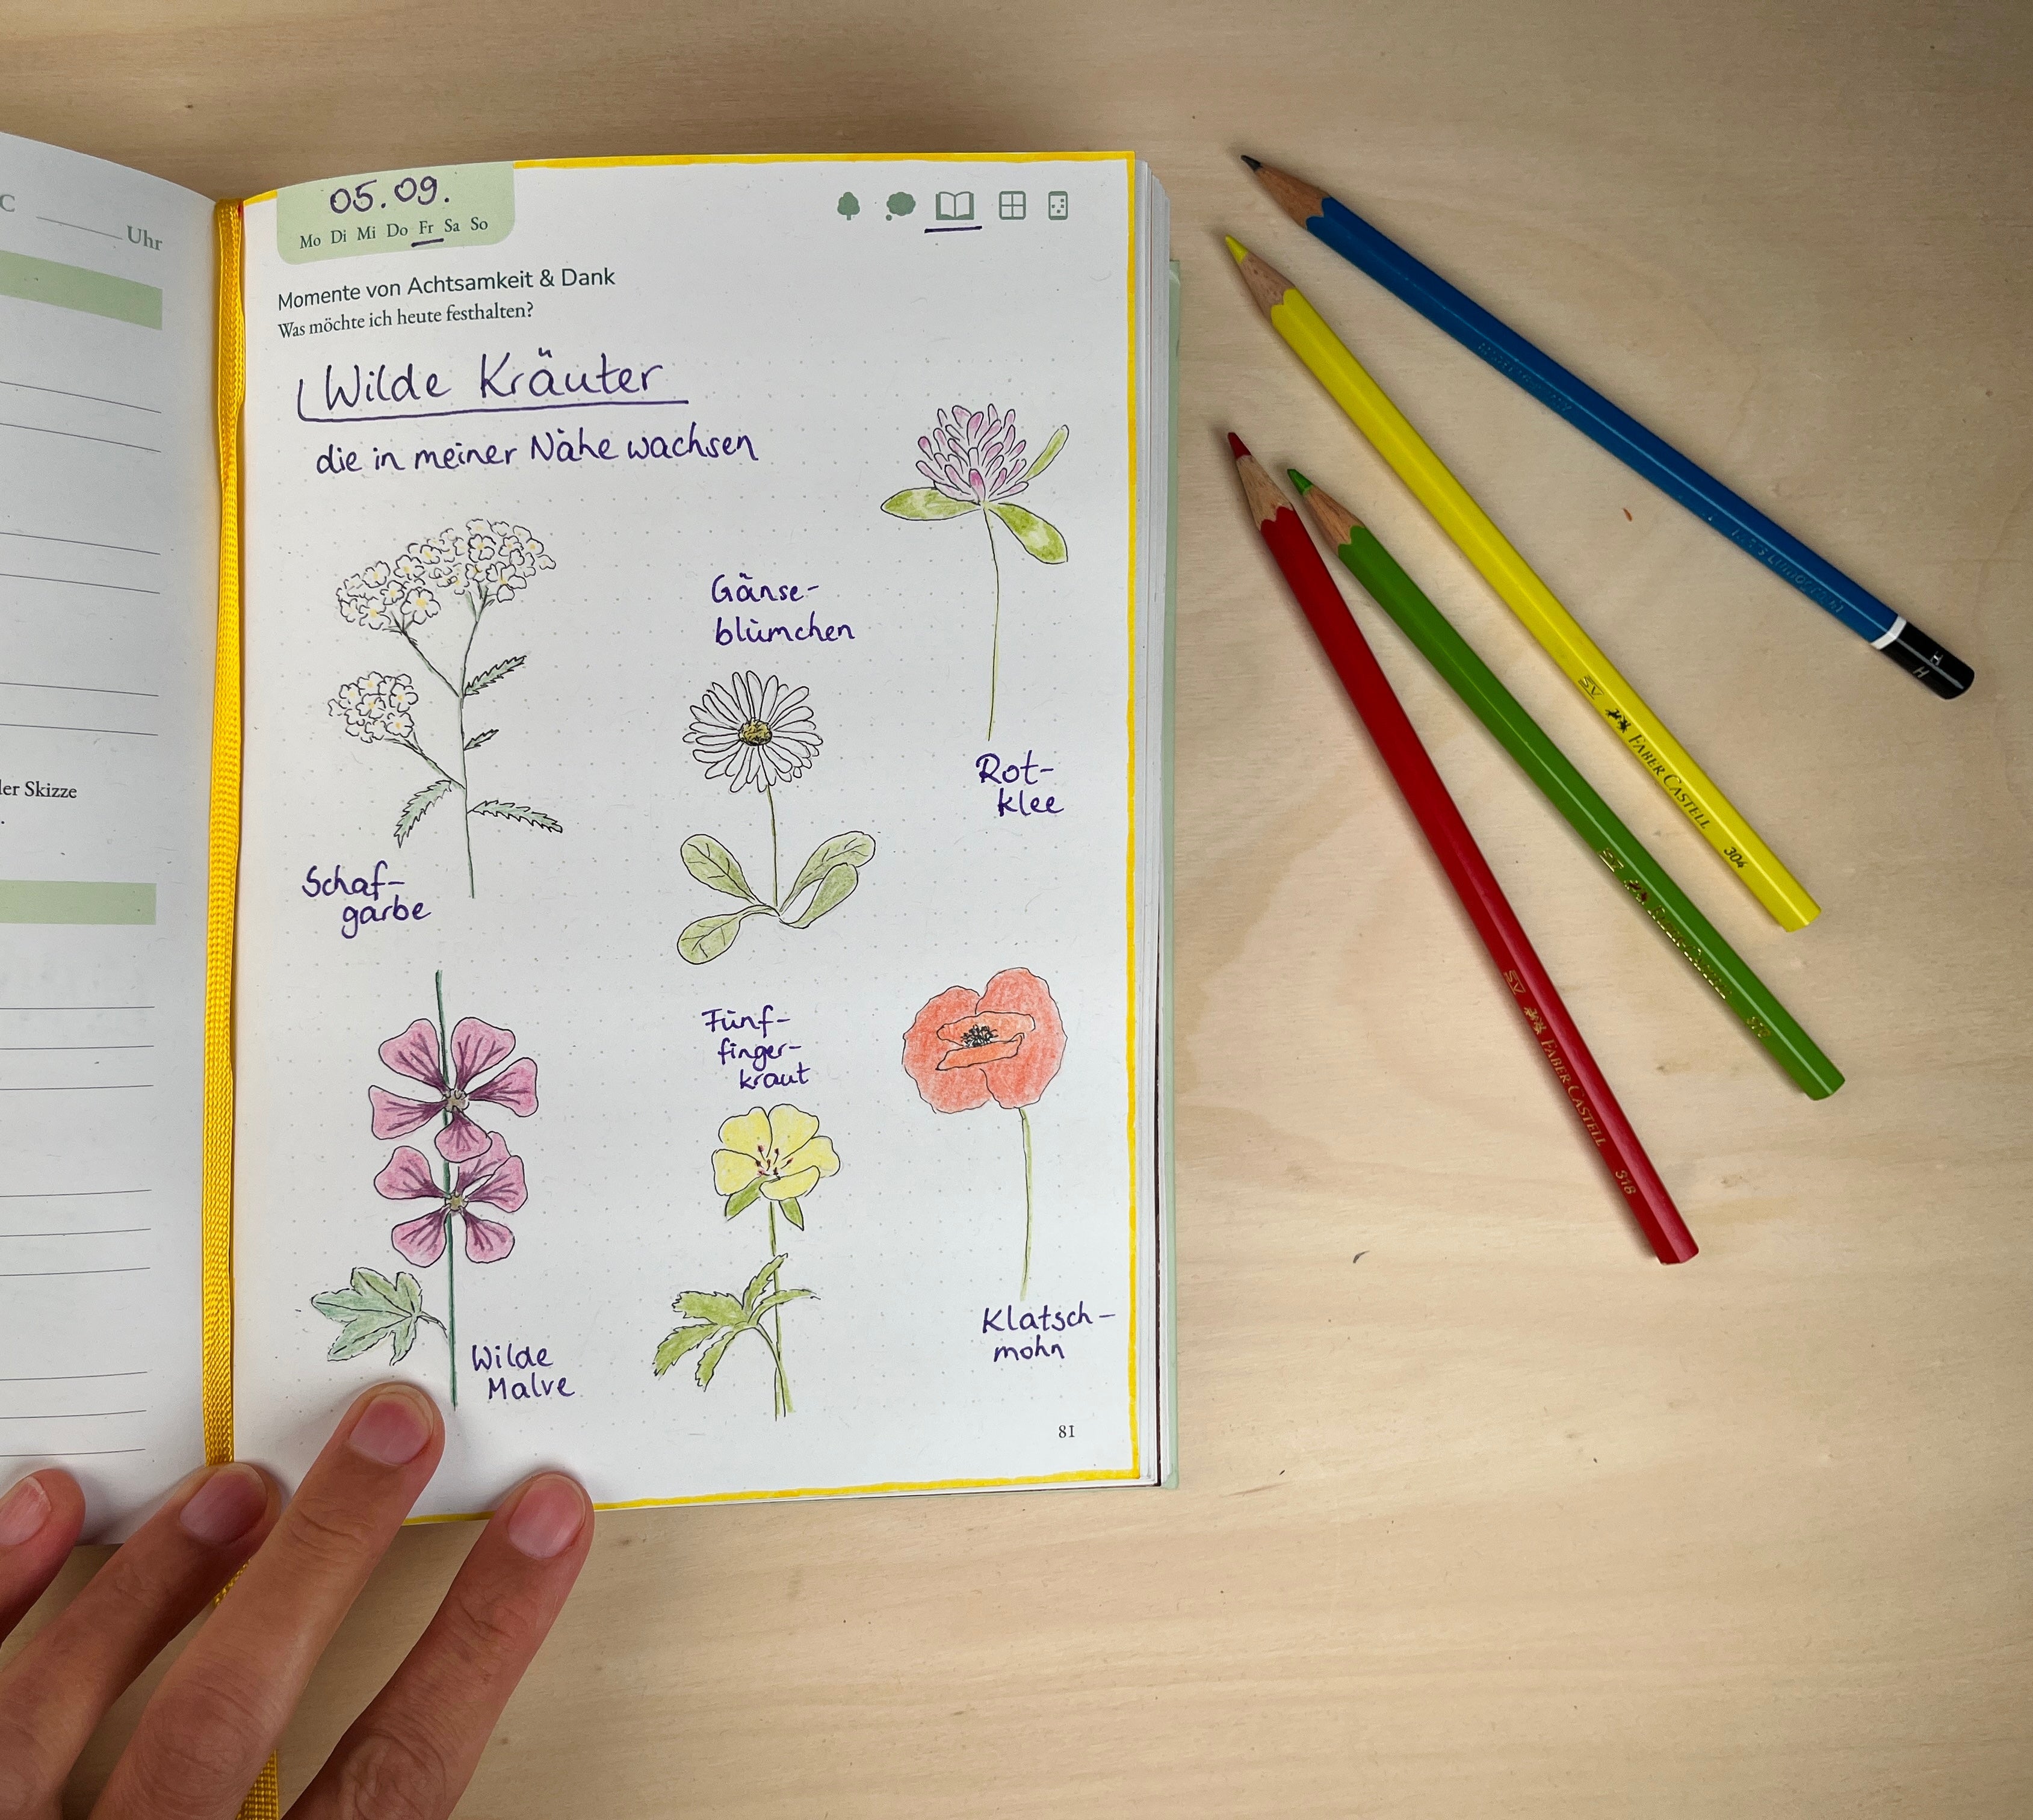 C
Uhr
der Skizze
.
05.09.
Mo Di Mi Do Fr Sa So
Momente von Achtsamkeit & Dank
Was möchte ich heute festhalten?
Wilde Kräuter
die in meiner Nähe wachsen
Gänse-
blümchen
Rot-
klee
Schaf-
garbe
Fünf-
finger-
kraut
Wilde
Malve
Klatsch-
mohn
81
H
H
SV FABER CASTELL 304
SV FABER CASTELL
SV FABER CASTELL 318